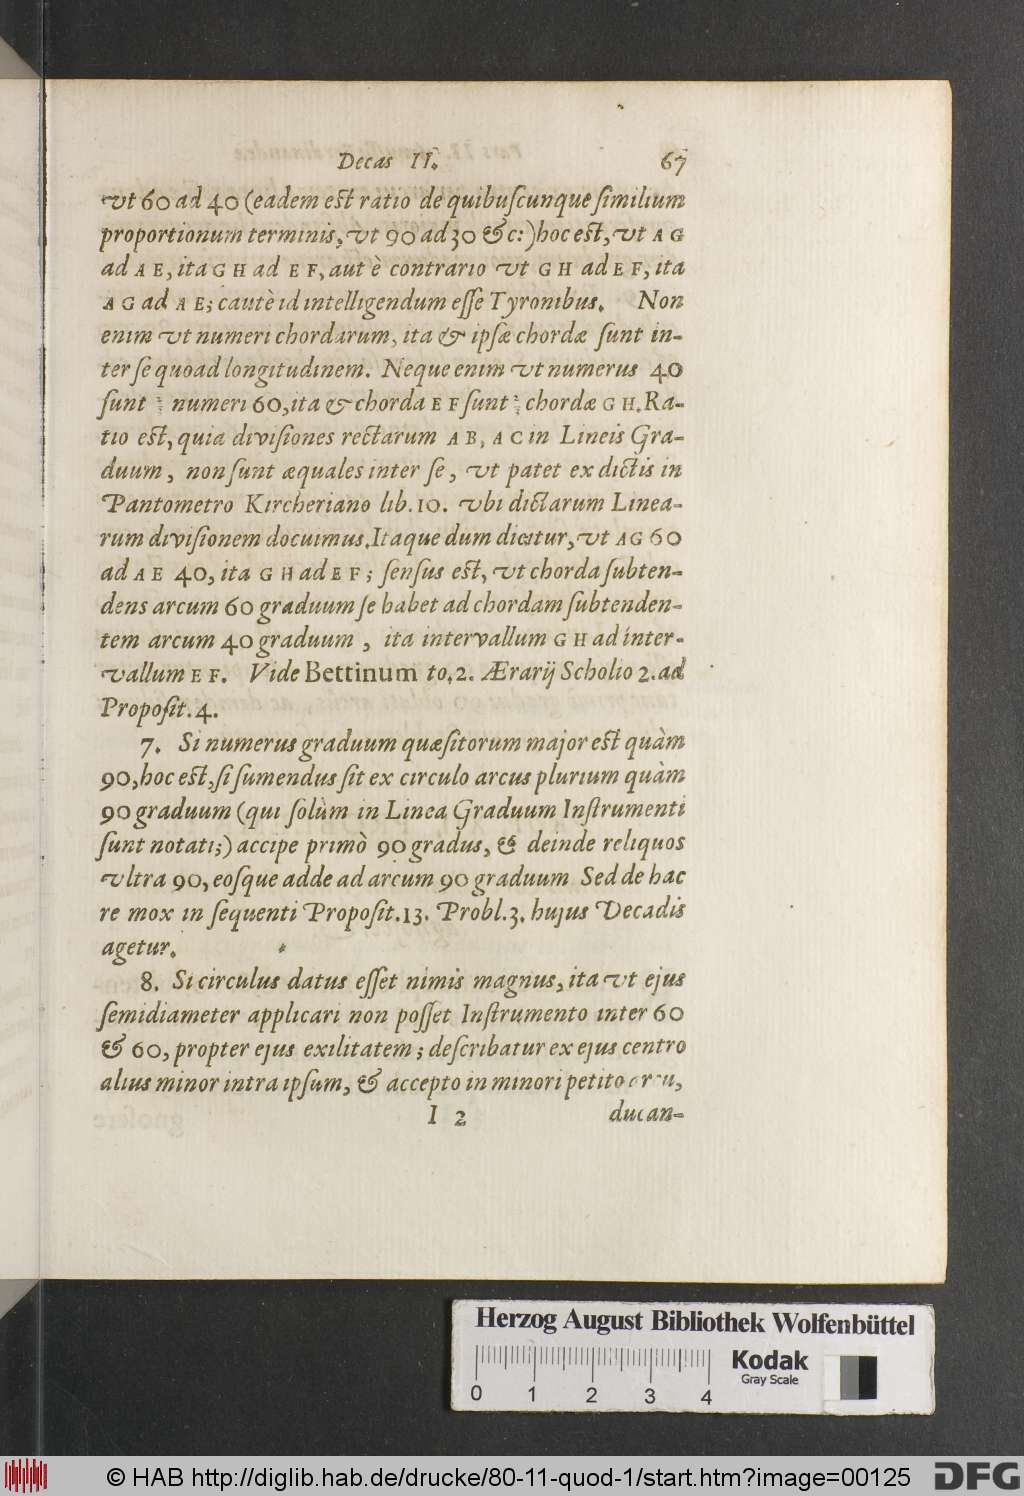 Decas II. 67
ut 60 ad 40 (eadem est ratio de quibuſcunque ſimilium
proportionum terminis, ut 90 ad 30 &c:) hoc est, ut A G
ad A E, ita G H ad E F, aut è contrario ut G H ad E F, ita
A G ad A E; cautè id intelligendum eſſe Tyronibus. Non
enim ut numeri chordarum, ita & ipſæ chordæ ſunt in-
ter ſe quoad longitudinem. Neque enim ut numerus 40
ſunt ⅔ numeri 60, ita & chorda E F ſunt ⅔ chordæ G H. Ra-
tio est, quia diviſiones rectarum A B, A C in Lineis Gra-
duum, non ſunt æquales inter ſe, ut patet ex dictis in
Pantometro Kircheriano lib. 10. ubi dictarum Linea-
rum diviſionem docuimus. Itaque dum dicitur, ut A G 60
ad A E 40, ita G H ad E F; ſenſus est, ut chorda ſubten-
dens arcum 60 graduum ſe habet ad chordam ſubtenden-
tem arcum 40 graduum, ita intervallum G H ad inter-
vallum E F. Vide Bettinum to. 2. Ærarij Scholio 2. ad
Propoſit. 4.
7. Si numerus graduum quæſitorum major est quàm
90, hoc est, ſi ſumendus ſit ex circulo arcus plurium quàm
90 graduum (qui ſolùm in Linea Graduum Inſtrumenti
ſunt notati;) accipe primò 90 gradus, & deinde reliquos
ultra 90, eoſque adde ad arcum 90 graduum Sed de hac
re mox in ſequenti Propoſit. 13. Probl. 3. hujus Decadis
agetur.
8. Si circulus datus eſſet nimis magnus, ita ut ejus
ſemidiameter applicari non poſſet Inſtrumento inter 60
& 60, propter ejus exilitatem; deſcribatur ex ejus centro
alius minor intra ipſum, & accepto in minori petito arcu,
I 2 ducan-
Herzog August Bibliothek Wolfenbüttel
Kodak
Gray Scale
0 1 2 3 4
© HAB http://diglib.hab.de/drucke/80-11-quod-1/start.htm?image=00125
DFG